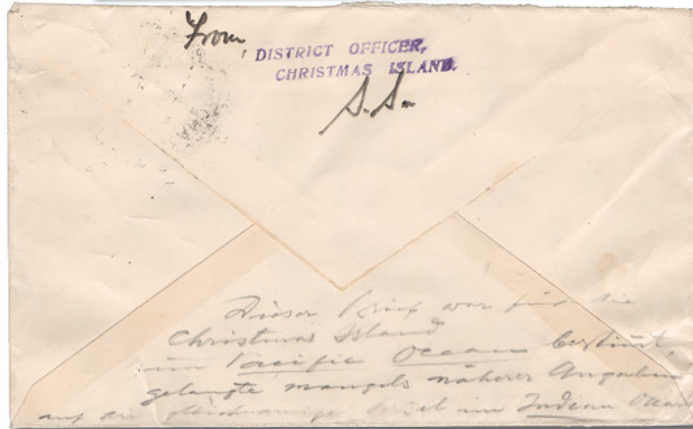 From
DISTRICT OFFICER,
CHRISTMAS ISLAND.
S. S.
Dieser Brief war für die
Christmas Island
im Pacific Ocean bestimmt,
gelangte mangels näherer Angaben
auf die gleichnamige Insel im Indian Ocean